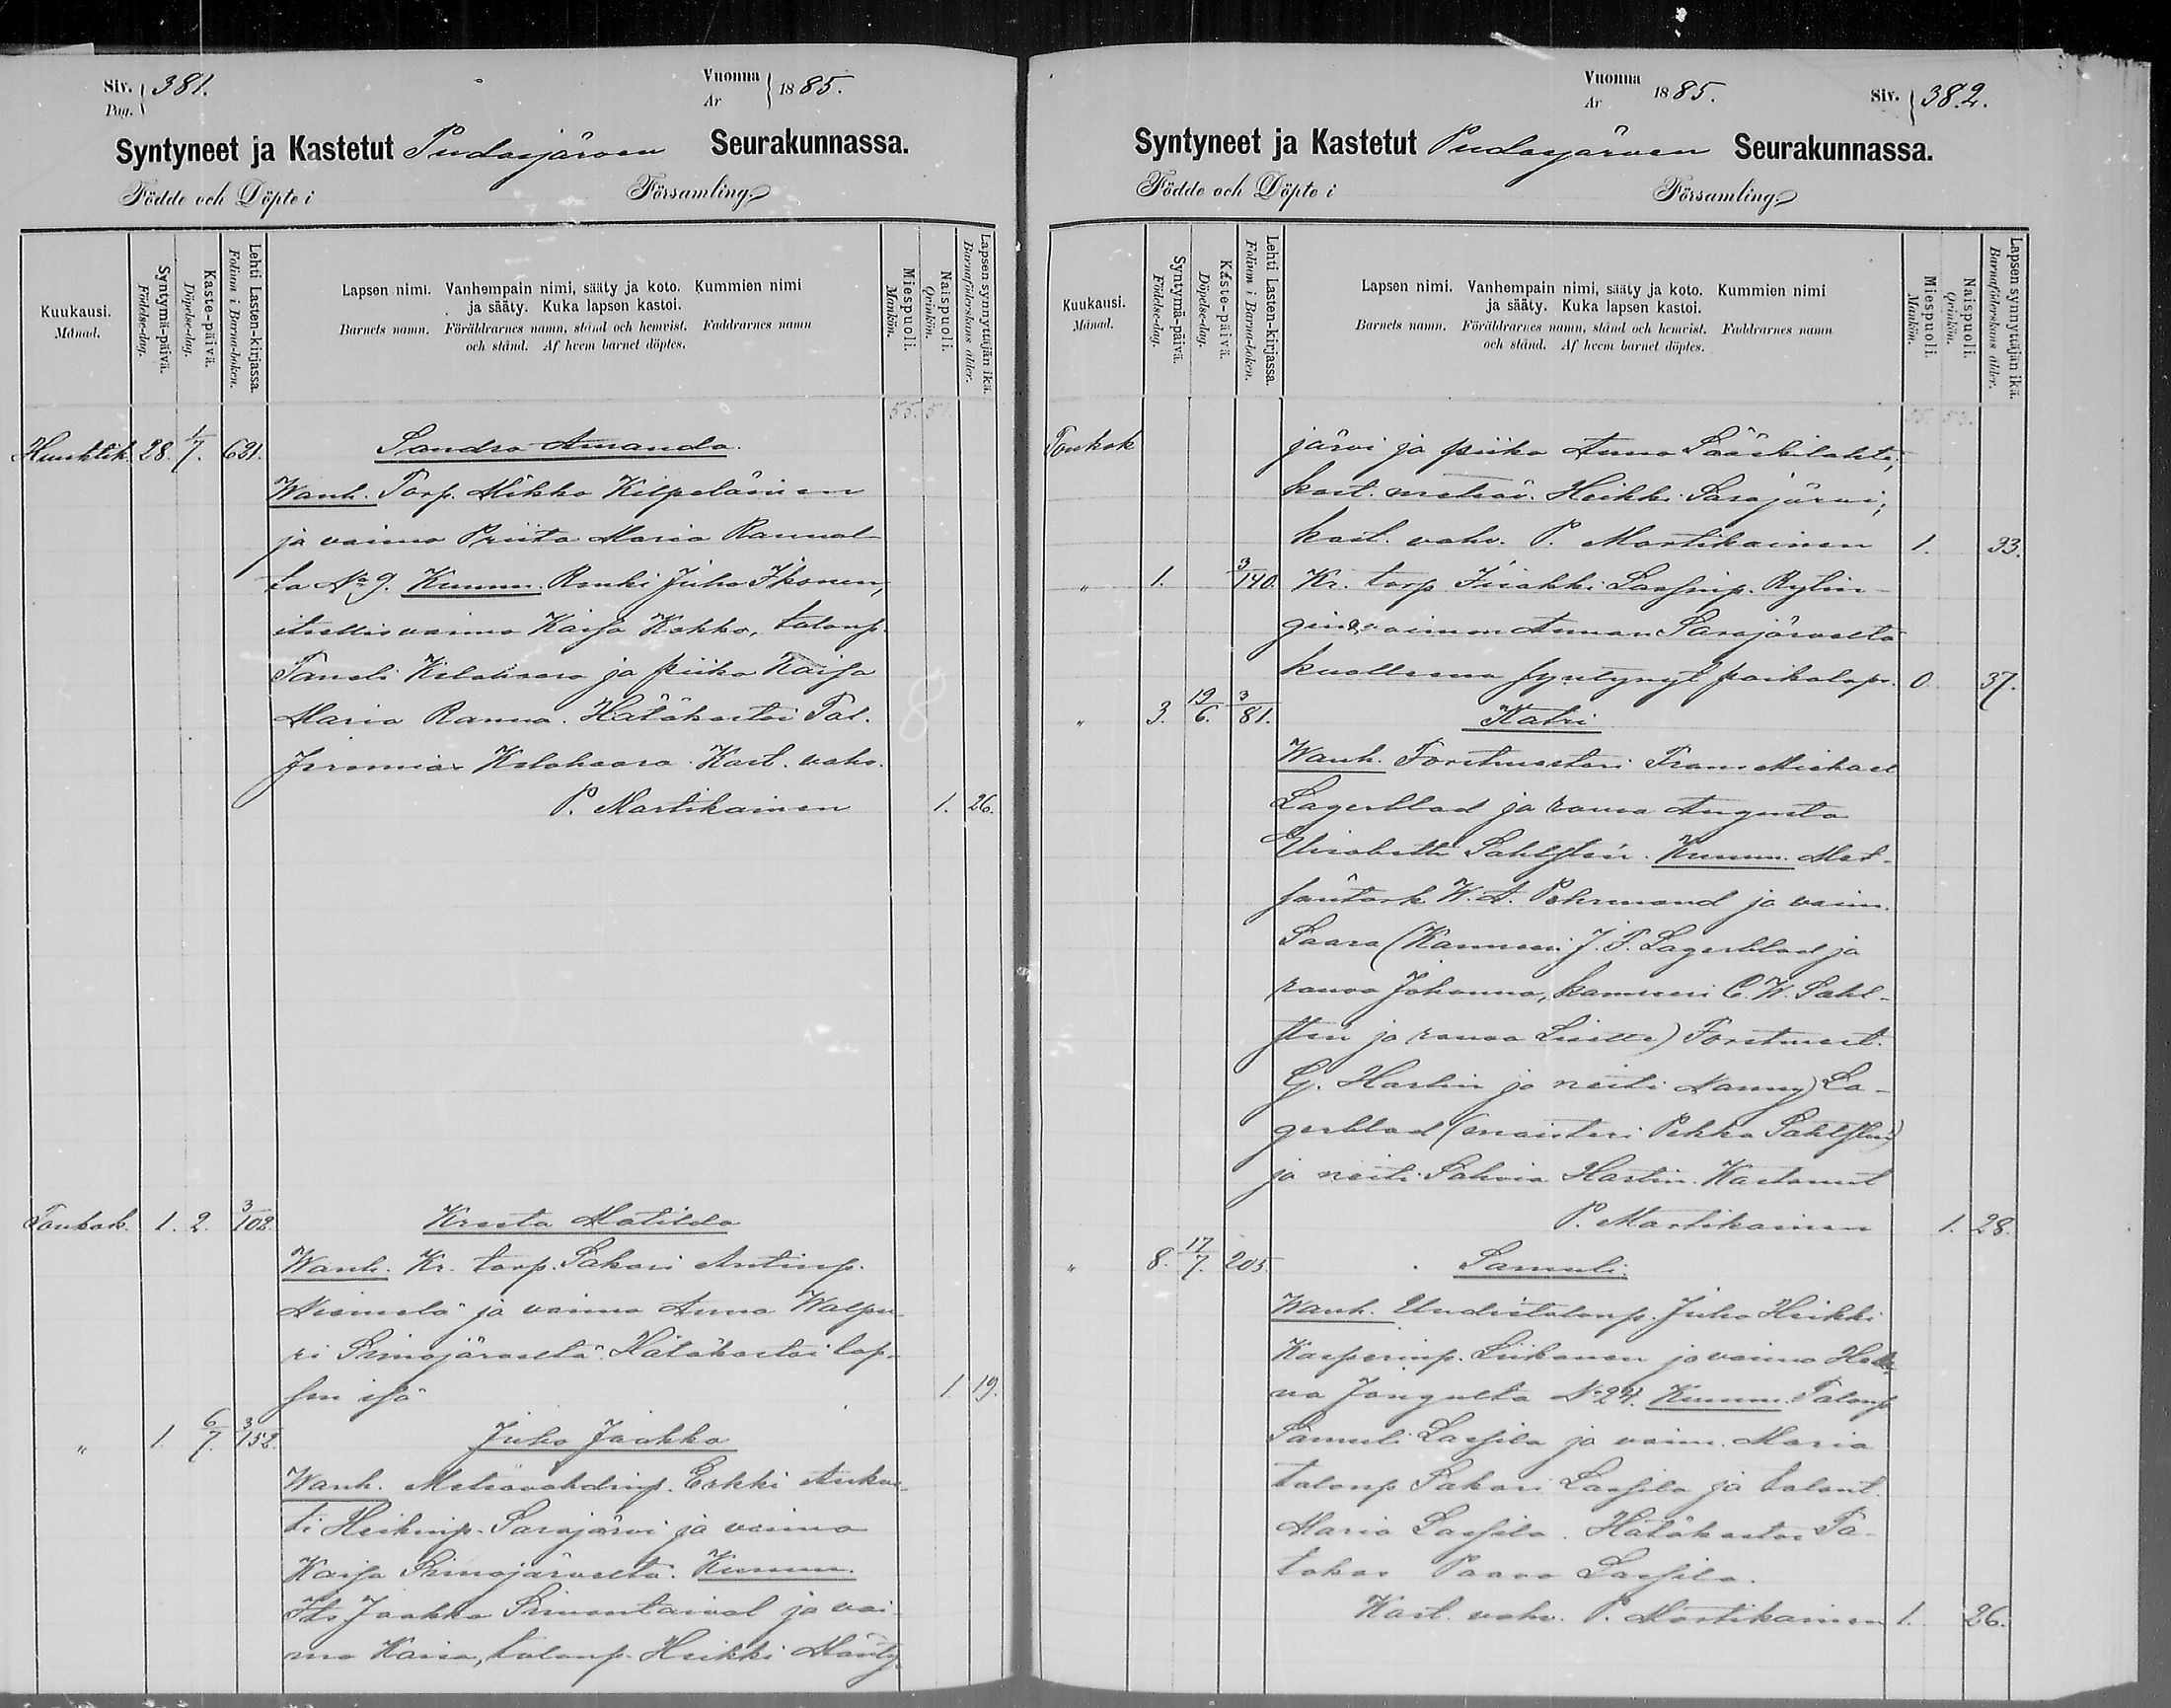 Siv. 381.
Pag.
Vuonna 1885.
År
Syntyneet ja Kastetut Pudasjärven Seurakunnassa.
Födde och Döpte i Församling.
Kuukausi.
Månad.
Syntymä-päivä.
Födelse-dag.
Kaste-päivä.
Döpelse-dag.
Lehti Lasten-kirjassa.
Folium i Barna-boken.
Lapsen nimi. Vanhempain nimi, sääty ja koto. Kummien nimi
ja sääty. Kuka lapsen kastoi.
Barnets namn. Föräldrarnes namn, stånd och hemvist. Faddrarnes namn
och stånd. Af hvem barnet döptes.
Miespuoli.
Mankön.
Naispuoli.
Qvinkön.
Lapsen synnyttäjän ikä.
Barnaföderskans ålder.
55. 51.
Huhtik. 28. 1/7. 631. Sandra Amanda.
Wanh. Torp. Mikko Kilpeläinen
ja vaimo Priita Maria Rannal-
ta No 9. Kumm. Renki Juho Ikonen,
itsellisvaimo Kaisa Kokko, talonp.
Taneli Kelahaara ja piika Kaisa
Maria Ranua. Hätäkastoi Tal.
Jeremias Kelahaara. Kast. vahv.
P. Martikainen 1. 26.
Toukok. 1. 2. 3/102. Kreeta Matilda
Wanh. Kr. torp. Sakari Antinp.
Niemelä ja vaimo Anna Walpu-
ri Simojärveltä. Hätäkastoi lap-
sen isä 1. 19.
" 1. 6/7. 3/152. Juho Jaakko
Wanh. Metsävahdinp. Erkki Auku-
ti Heikinp. Sarajärvi ja vaimo
Kaisa Simojärveltä. Kumm.
Its. Jaakko Simontaival ja vai-
mo Kaisa, talonp. Heikki Mänty-
Vuonna 1885.
År
Siv. 382.
Syntyneet ja Kastetut Pudasjärven Seurakunnassa.
Födde och Döpte i Församling.
Kuukausi.
Månad.
Syntymä-päivä.
Födelse-dag.
Kaste-päivä.
Döpelse-dag.
Lehti Lasten-kirjassa.
Folium i Barna-boken.
Lapsen nimi. Vanhempain nimi, sääty ja koto. Kummien nimi
ja sääty. Kuka lapsen kastoi.
Barnets namn. Föräldrarnes namn, stånd och hemvist. Faddrarnes namn
och stånd. Af hvem barnet döptes.
Miespuoli.
Mankön.
Naispuoli.
Qvinkön.
Lapsen synnyttäjän ikä.
Barnaföderskans ålder.
Toukok järvi ja piika Anna Sääskilahti;
kast. metsäv. Heikki Sarajärvi;
kast. vahv. P. Martikainen 1. 33.
" 1. 3/140. Kr. torp. Iisakki Lassinp. Rylin-
gin vaimon Annan Sarajärveltä
kuolleena syntynyt poikalaps. 0. 37.
" 3. 19/6. 3/81. Katri
Wanh. Forstmestari Frans Michael
Lagerblad ja rouva Augusta
Elisabeth Sahlstein. Kumm. Met-
säntark. W. A. Pohrmand ja vaim.
Saara (Kamreeri J. F. Lagerblad ja
rouva Johanna, kamreeri C. W. Sahl-
stein ja rouva Lisette) Forstmest.
G. Hartin ja neiti Nanny La-
gerblad (maisteri Pekka Sahlstein)
ja neiti Salvia Hartin. Kastanut
P. Martikainen 1. 28.
" 8. 17/7. 205. Samuli.
Wanh. Uudistalonp. Juho Heikki
Kasperinp. Liikanen ja vaimo
Jongulta No 24. Kumm. Talonp.
Samuli Lassila ja vaim. Maria
talonp. Sakari Lassila ja talont.
Maria Lassila. Hätäkastoi Ta-
lokas Paavo Lassila.
Kast. vahv. P. Martikainen 1. 26.